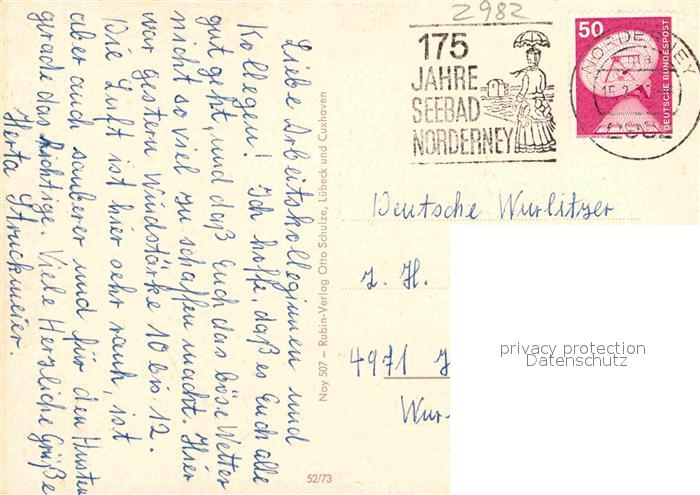 2982
175
JAHRE
SEEBAD
NORDERNEY
50
DEUTSCHE BUNDESPOST
NORDERNEY
2982
Liebe Arbeitskolleginnen und
Kollegen! Ich hoffe, daß es Euch alle
gut geht, und daß Euch das böse Wetter
nicht so viel zu schaffen macht. Hier
war gestern Windstärke 10 bis 12.
Die Luft ist hier sehr rauh, ist
aber auch sauberer und für den Husten
gerade das Richtige. Viele Herzliche Grüße
Herta Struckmeier.
Noy 507 – Rubin-Verlag Otto Schulze, Lübeck und Cuxhaven
52/73
Deutsche Wurlitzer
z. H.
4971
Wur-
privacy protection
Datenschutz